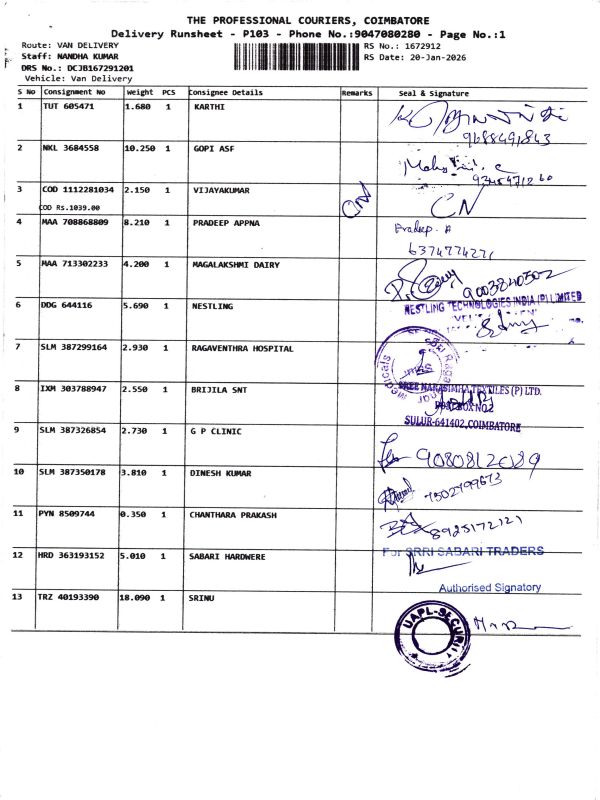 THE PROFESSIONAL COURIERS, COIMBATORE
Delivery Runsheet - P103 - Phone No.:9047080280 - Page No.:1
Route: VAN DELIVERY RS No.: 1672912
Staff: NANDHA KUMAR RS Date: 20-Jan-2026
DRS No.: DCJB167291201
Vehicle: Van Delivery
S No Consignment No Weight PCS Consignee Details Remarks Seal & Signature
1 TUT 605471 1.680 1 KARTHI
9688491843
2 NKL 3684558 10.250 1 GOPI ASF
3 COD 1112281034 2.150 1 VIJAYAKUMAR CN
COD Rs.1039.00
4 MAA 708868809 8.210 1 PRADEEP APPNA Pradeep. A
6374774271
5 MAA 713302233 4.200 1 MAGALAKSHMI DAIRY
9003840502
6 DDG 644116 5.690 1 NESTLING NESTLING TECHNOLOGIES INDIA (P) LIMITED
7 SLM 387299164 2.930 1 RAGAVENTHRA HOSPITAL
8 IXM 303788947 2.550 1 BRIJILA SNT SREE NARASIMHA TEXTILES (P) LTD.
POST BOX NO.2
SULUR-641402, COIMBATORE
9 SLM 387326854 2.730 1 G P CLINIC
9080812089
10 SLM 387350178 3.810 1 DINESH KUMAR 7502799673
11 PYN 8509744 0.350 1 CHANTHARA PRAKASH 8925172121
12 HRD 363193152 5.010 1 SABARI HARDWERE For SRRI SABARI TRADERS
Authorised Signatory
13 TRZ 40193390 18.090 1 SRINU
UAPL-SECURITY